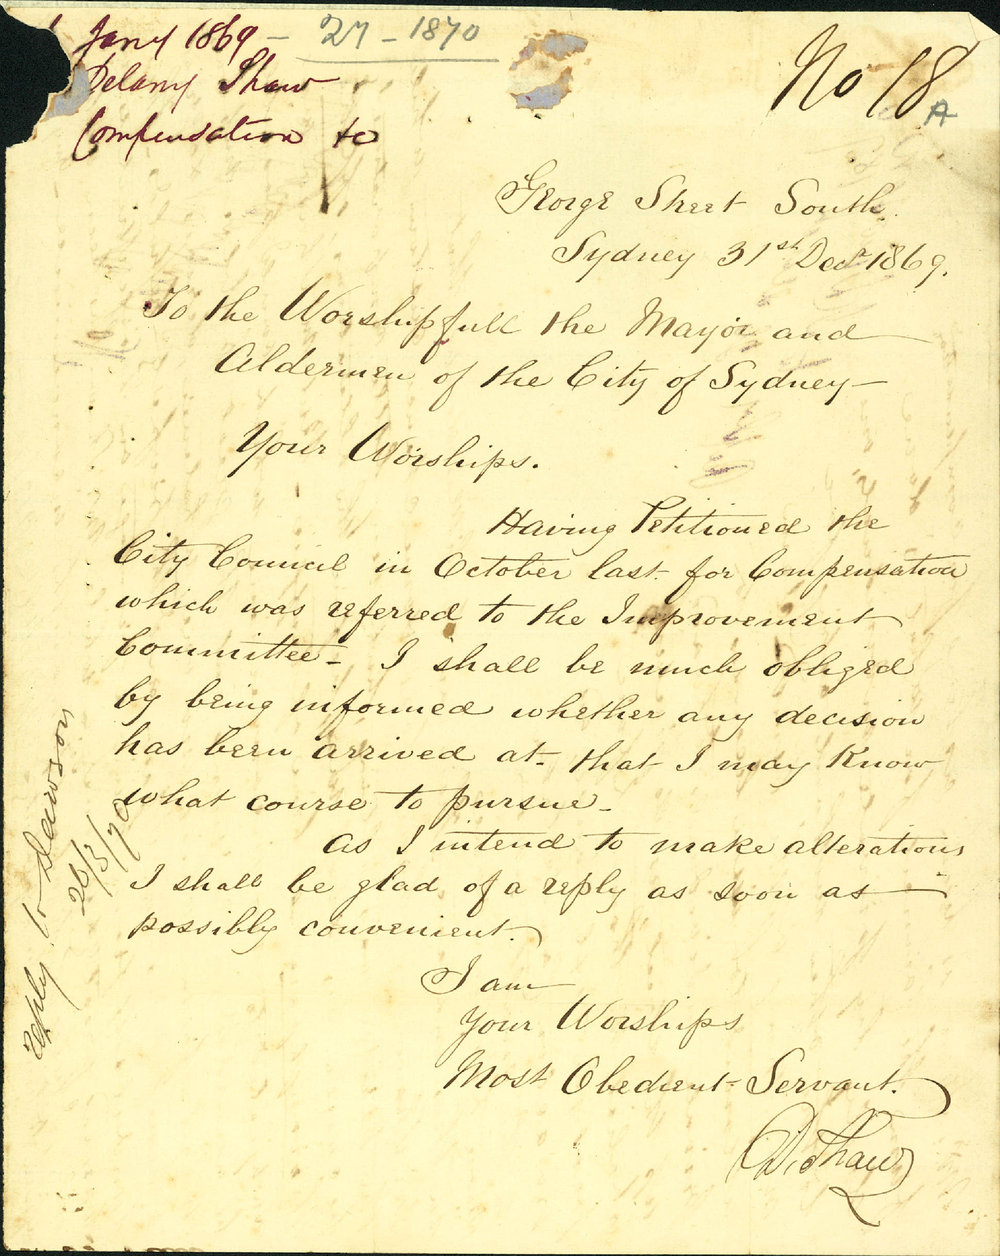 Jany 1869 - 27 - 1870
Delany Shaw
Compensation to
No 18
A
George Street South.
Sydney 31st Decr 1869.
To the Worshipfull the Mayor and
Aldermen of the City of Sydney -
Your Worships.
Having Petitioned the
City Council in October last for Compensation
which was referred to the Improvement
Committee - I shall be much obliged
by being informed whether any decision
has been arrived at - that I may Know
what course to pursue -
As I intend to make alterations
I shall be glad of a reply as soon as
possibly convenient.
I am
Your Worships
Most Obedient Servant.
D. Shaw
Reply to Dawson
26/3/70